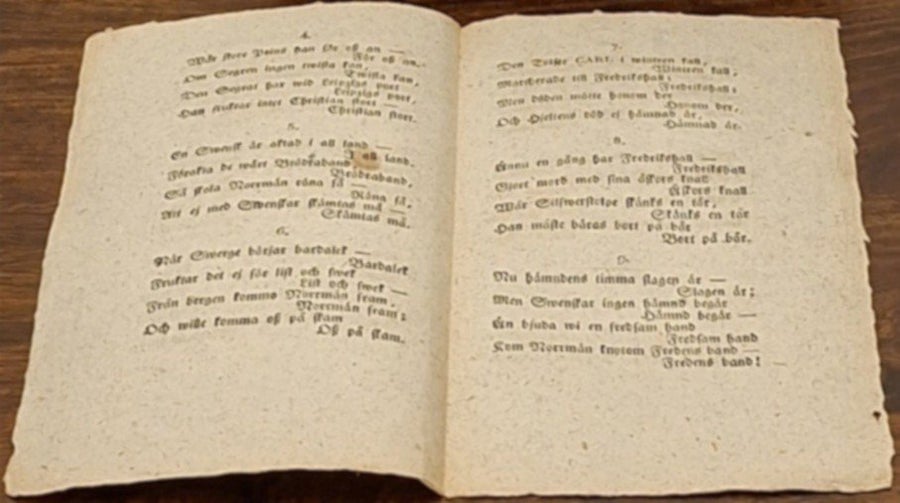 4.
Wår store Prins han för oß an —
För oß an.
Om Segren ingen twista kan,
Twista kan,
Den Segrat har wid Leipzigs port
Leipzigs port,
Han fruktar intet Christian stort —
Christian stort.
5.
En Swensk är aktad i all land —
I all land.
Förakta de wårt Brödraband,
Brödraband,
Så skola Norrmän röna så —
Röna så,
Att ej med Swenskar skämtas må —
Skämtas må.
6.
När Swerge börjar bardalek —
Bardalek
Fruktar det ej för list och swek
List och swek —
Från bergen komme Norrmän fram,
Norrmän fram;
Och wille komma oß på skam
Oß på skam.
7.
Den Tolfte CARL i wintren kall,
Wintren kall,
Marcherade till Fredrikshall;
Fredrikshall;
Men döden mötte honom der
Honom der,
Och Hjeltens död ej hämnad är,
Hämnad är.
8.
Ännu en gång har Fredrikshall —
Fredrikshall
Gjort mord med sina åskors knall
Åskors knall
Wår Silfwerstolpe skänks en tår,
Skänks en tår
Han måste båras bort på bår
Bort på bår.
9.
Nu hämndens timma slagen är —
Slagen är;
Men Swenskar ingen hämnd begär
Hämnd begär —
Än bjuda wi en fredsam hand
Fredsam hand
Kom Norrmän knytom Fredens band —
Fredens band!